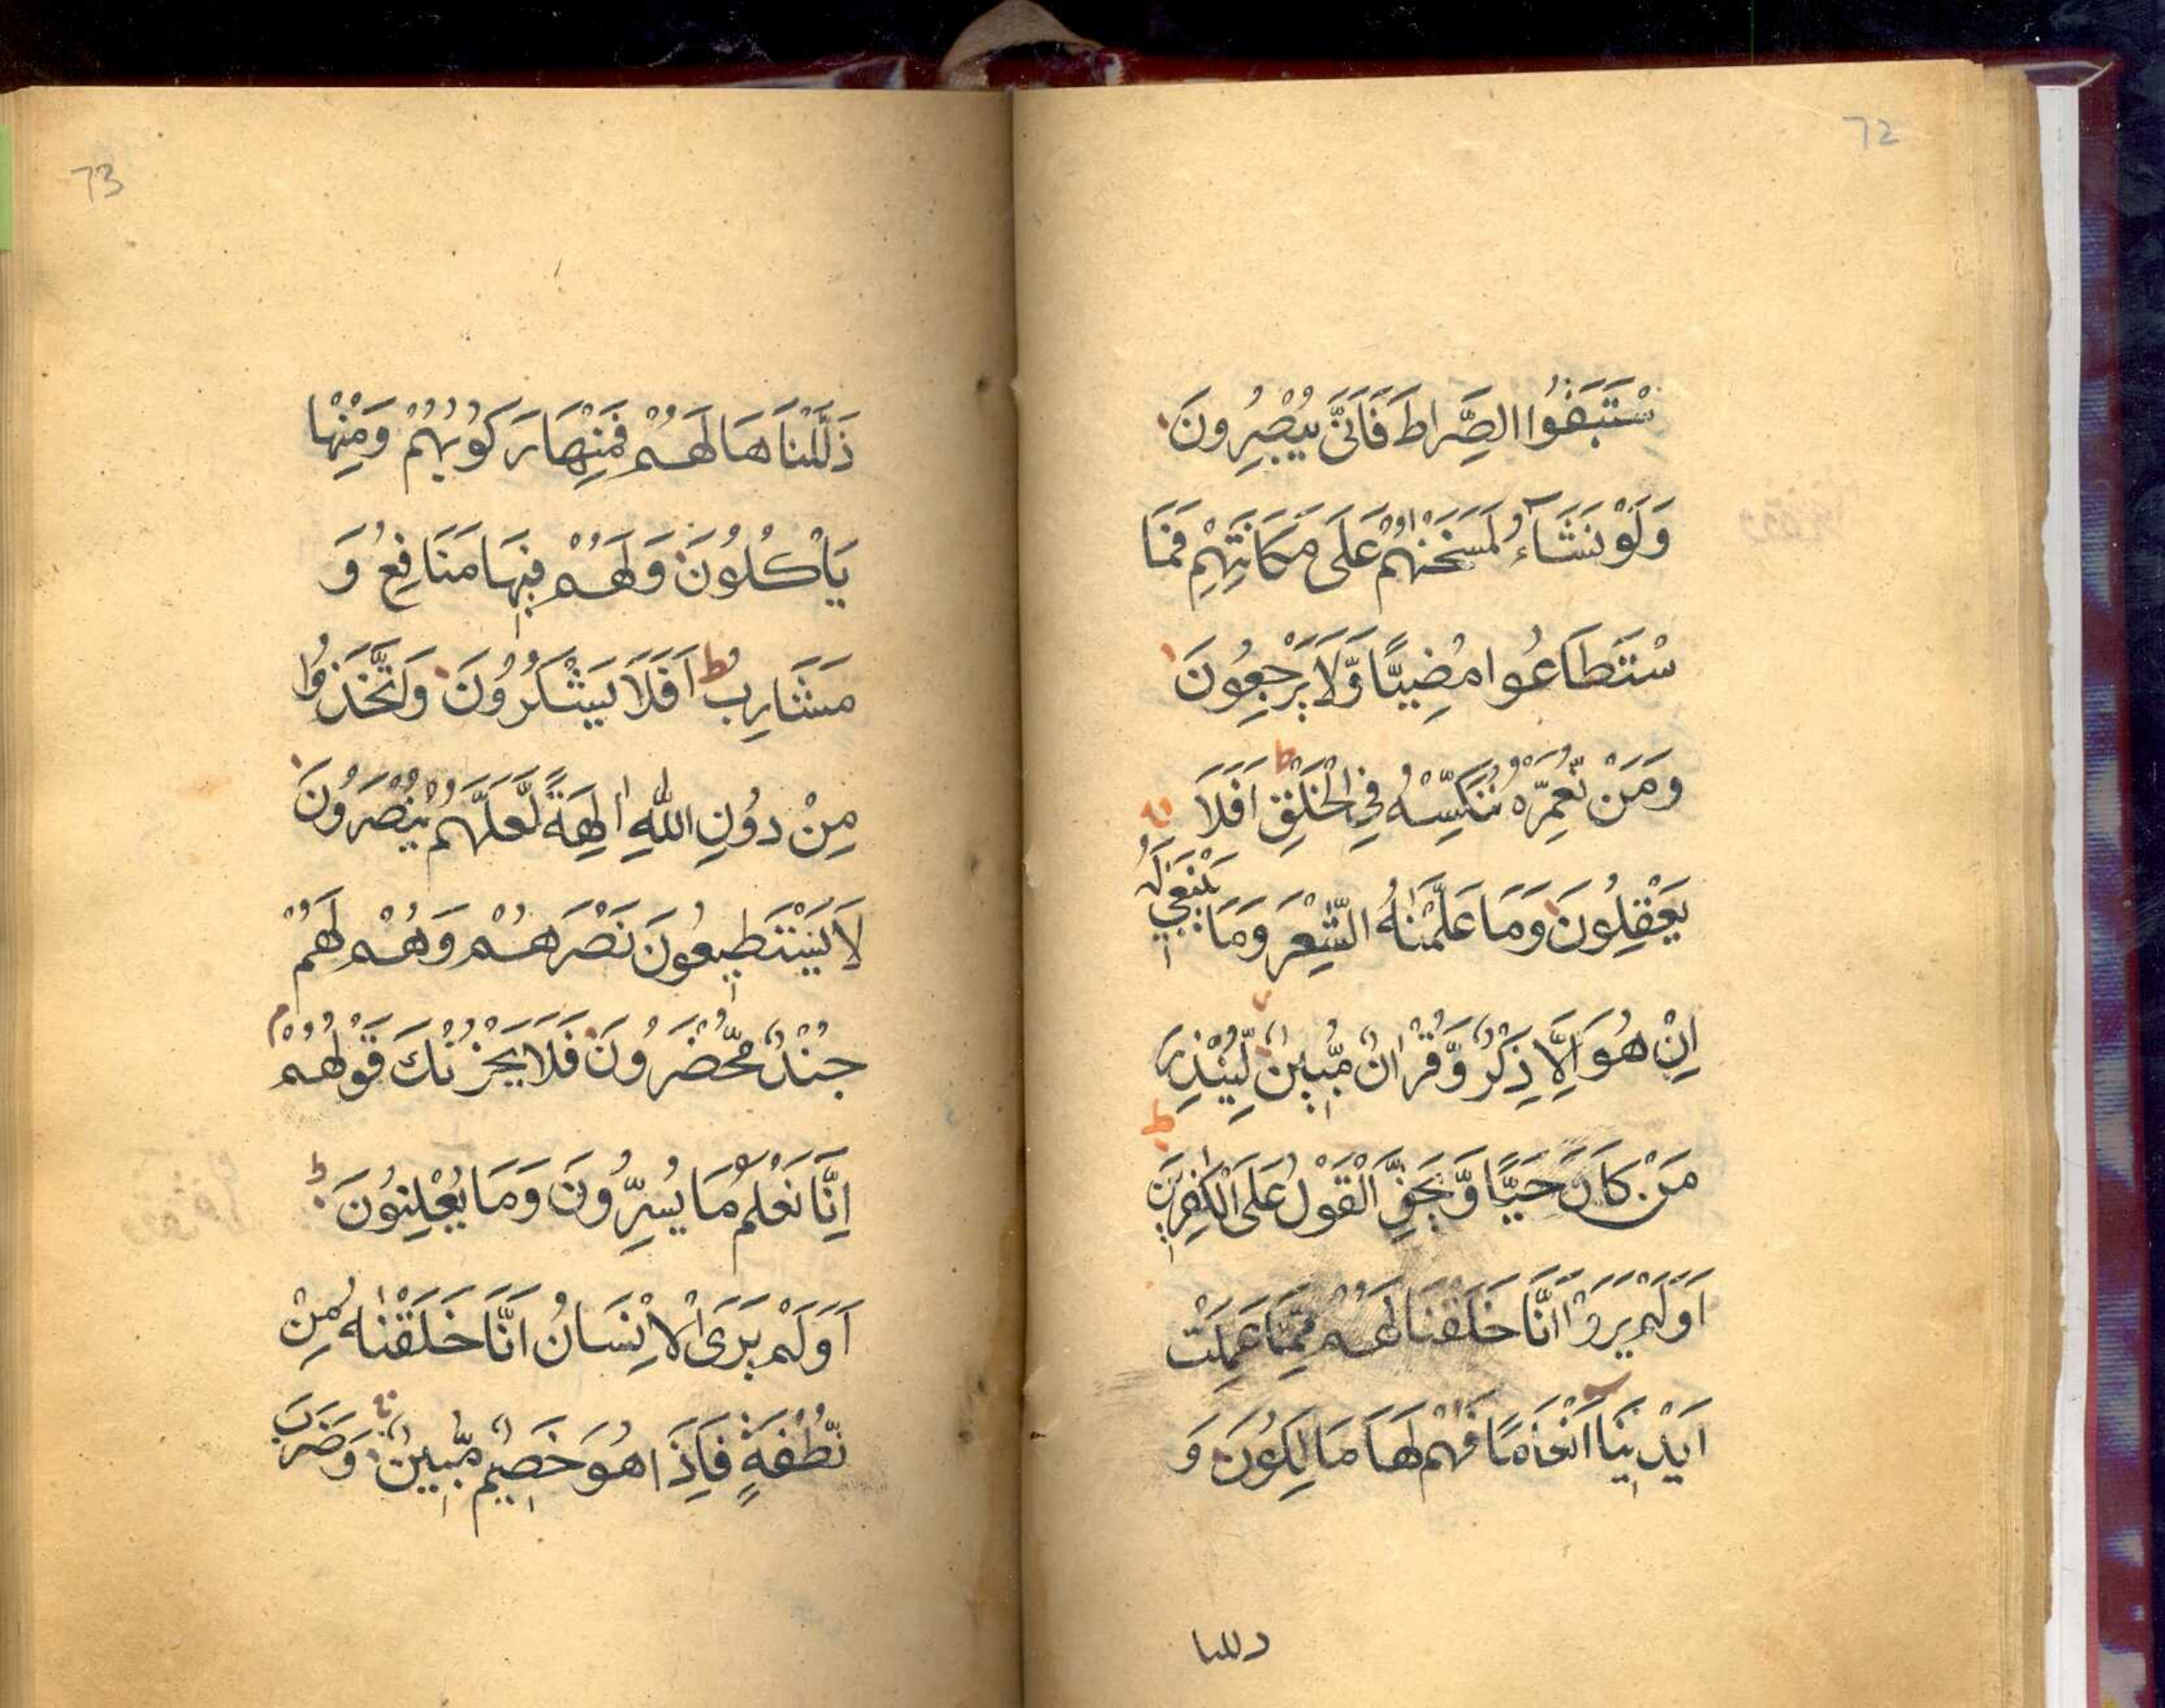 72
سْتَبَقُوا الصِّرَاطَ فَاَنّٰى يُبْصِرُونَ
وَلَوْ نَشَآءُ لَمَسَخْنٰهُمْ عَلَى مَكَانَتِهِمْ فَمَا
سْتَطَاعُوا مُضِيًّا وَّلَا يَرْجِعُونَ
وَمَنْ نُّعَمِّرْهُ نُنَكِّسْهُ فِي الْخَلْقِ ط اَفَلَا
يَعْقِلُونَ وَمَا عَلَّمْنٰهُ الشِّعْرَ وَمَا يَنْبَغِي لَهُ
اِنْ هُوَ اِلَّا ذِكْرٌ وَّقُرْاٰنٌ مُّبِينٌ لِّيُنْذِرَ
مَنْ كَانَ حَيًّا وَّيَحِقَّ الْقَوْلُ عَلَى الْكٰفِرِينَ
اَوَلَمْ يَرَوْا اَنَّا خَلَقْنَا لَهُمْ مِّمَّا عَمِلَتْ
اَيْدِينَا اَنْعَامًا فَهُمْ لَهَا مَالِكُونَ وَ
دللىا
73
ذَلَّلْنَاهَا لَهُمْ فَمِنْهَا رَكُوبُهُمْ وَمِنْهَا
يَاْكُلُونَ وَلَهُمْ فِيهَا مَنَافِعُ وَ
مَشَارِبُ ط اَفَلَا يَشْكُرُونَ وَاتَّخَذُوا
مِنْ دُونِ اللّٰهِ اٰلِهَةً لَّعَلَّهُمْ يُنْصَرُونَ
لَا يَسْتَطِيعُونَ نَصْرَهُمْ وَهُمْ لَهُمْ
جُنْدٌ مُّحْضَرُونَ فَلَا يَحْزُنْكَ قَوْلُهُمْ م
اِنَّا نَعْلَمُ مَا يُسِرُّونَ وَمَا يُعْلِنُونَ ط
اَوَلَمْ يَرَى الْاِنْسَانُ اَنَّا خَلَقْنٰهُ مِنْ
نُّطْفَةٍ فَاِذَا هُوَ خَصِيمٌ مُّبِينٌ وَضَرَبَ